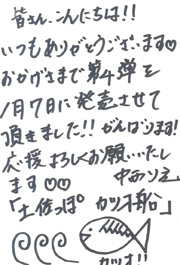 皆さん、こんにちは!!
いつもありがとうございます♡
おかげさまで第4弾を
1月7日に発売させて
頂きました!! がんばります!
応援よろしくお願いいたし
ます♡♡
「土佐っぽ カツオ船」
カツオ!!